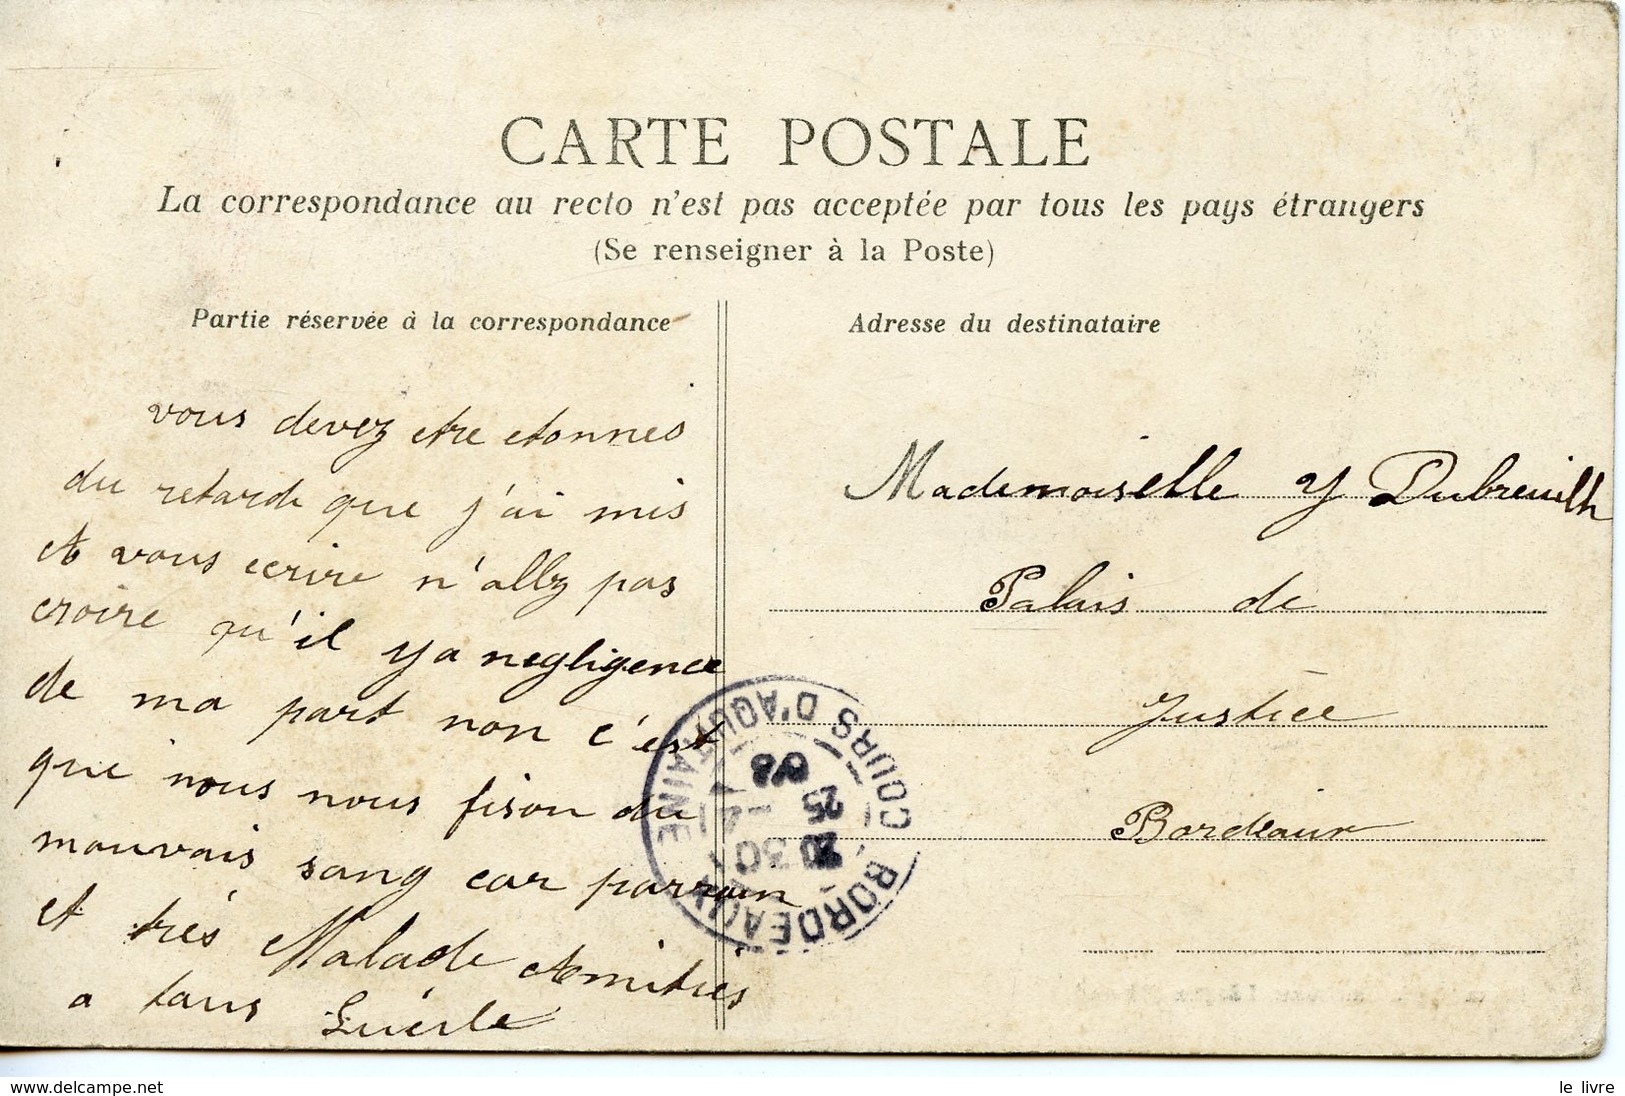 CARTE POSTALE
La correspondance au recto n'est pas acceptée par tous les pays étrangers
(Se renseigner à la Poste)
Partie réservée à la correspondance
vous devez etre etonnés
du retard que j'ai mis
et vous ecrire n'allez pas
croire qu'il y a negligence
de ma part non c'est
que nous nous fison du
mauvais sang car parrain
et très Malade Amitiés
a tous
Adresse du destinataire
Mademoiselle Y Dubreuilh
Palais de
Justice
Bordeaux
BORDEAUX COURS D'AQUITAINE
20 30
25 - 4
08
delcampe.net
le livre